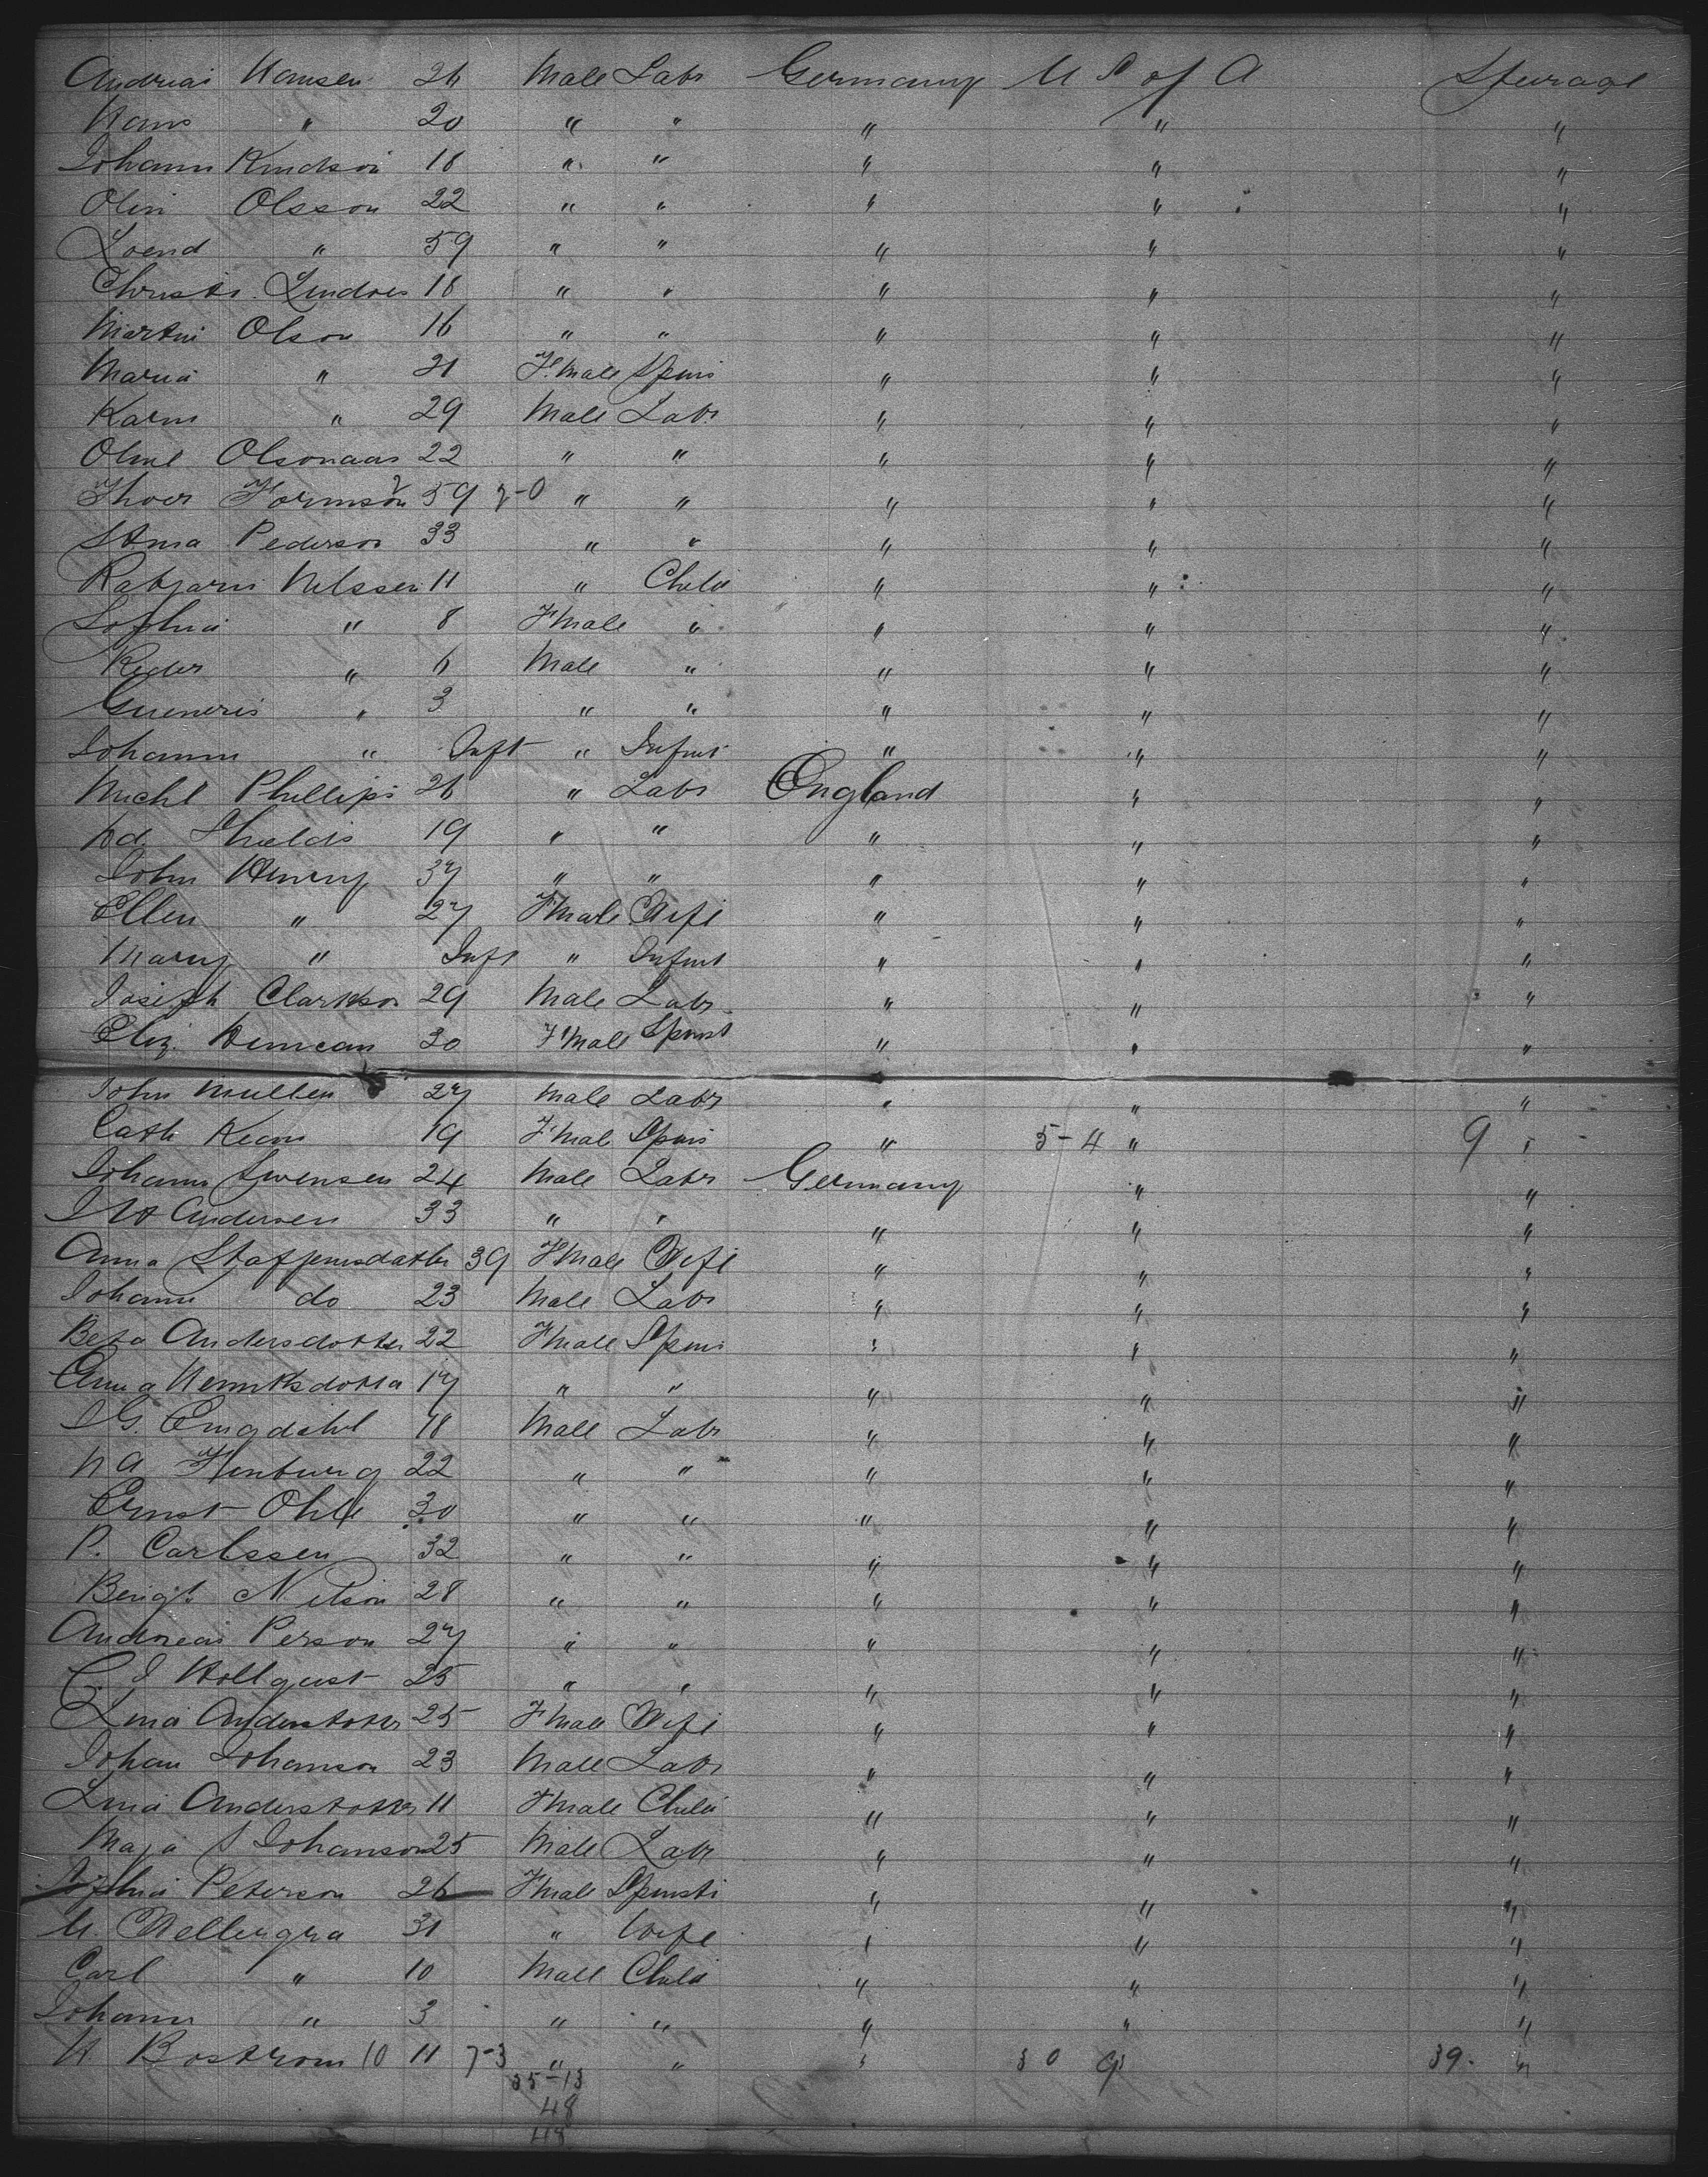 Andreas Hansen 26 Male Labr Germany U S of A Steerage
Hans " 20 " " " " "
Johann Knudson 18 " " " " "
Olin Olsson 22 " " " " "
Loend " 59 " " " " "
Christr. Lindres 18 " " " " "
Martin Olson 16 " " " " "
Maria " 21 F.male Spins " " "
Karin " 29 Male Labr " " "
Oline Olsonaas 22 " " " " "
Thoer Formson 59 2-0 " " " " "
Stma Pederson 33 " " " " "
Rabjarn Nilssen 11 " Child " " "
Sophia " 8 Fmale " " " "
Peder " 6 Male " " " "
" 3 " " " " "
Johann " Inft " Infant " " "
Michl Phillips 26 " Labr England " "
Shields 19 " " " " "
John Henry 37 " " " " "
Ellen " 27 Fmale Wife " " "
Mary " Inft " Infant " " "
Joseph Clarkson 29 Male Labr " " "
Eliz. Duncan 30 Fmale Spinst " " "
John Mullen 27 Male Labr " " "
Cath Keon 19 Fmale Spins " 5-4 " 9 "
Johann Swensen 24 Male Labr Germany " "
Andersen 33 " " " " "
Anna Staffensdatter 39 Fmale Wife " " "
Johann do 23 Male Labr " " "
Beta Andersdotter 22 Fmale Spins " " "
Anna Henriksdotta 17 " " " " "
I G. Engdahl 18 Male Labr " " "
N A 22 " " " " "
Ernst Ohle 30 " " " " "
P. Carlssen 32 " " " " "
Bengt Nilson 28 " " " " "
Andreas Person 27 " " " " "
C. J Hollquist 25 " " " " "
Lina Anderstotter 25 Fmale Wife " " "
Johan Johanson 23 Male Labr " " "
Lina Anderstotter 11 Fmale Child " " "
Maja S Johanson 25 Male Labr " " "
Sophia Peterson 26 Fmale Spinstr " " "
U. Wellergra 31 " Wife " " "
Carl " 10 Male Child " " "
Johann " 3 " " " " "
H Bostrom 10 11 7-3 " " " 30 9 " 39. "
35-13
48
48